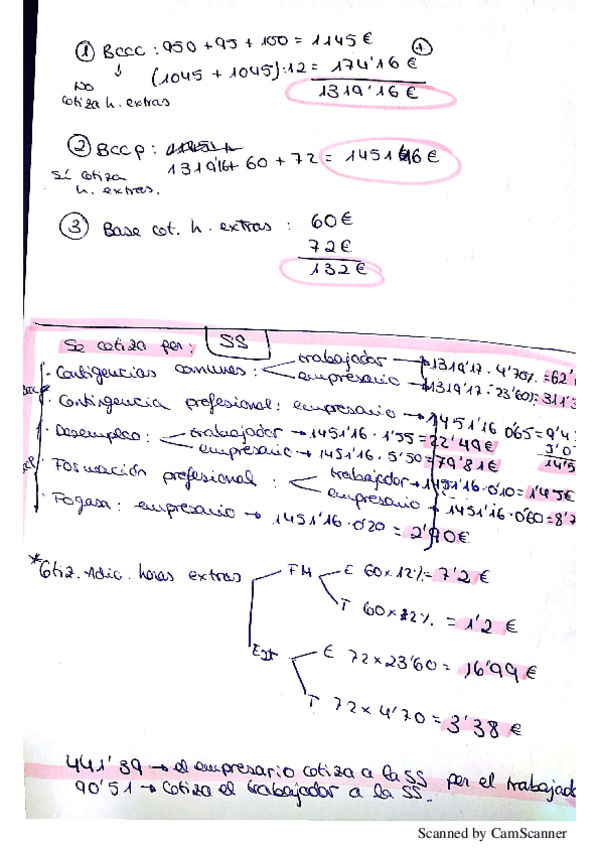 ① BCCC : 950 + 95 + 100 = 1145 €
↓ (1045 + 1045):12 = 174'16 € +
No cotiza h. extras
1319'16 €
② BCCP :
1319'16 + 60 + 72 = 1451'16 €
Sí cotiza h. extras.
③ Base cot. h. extras : 60 €
72 €
132 €
Se cotiza por: SS
· Contigencias comunes : trabajador → 1319'17 · 4'70% = 62'
empresario → 1319'17 · 23'60 = 311'3
· Contingencia profesional : empresario → 1451'16 0'65 = 9'4
3'0
14'5
· Desempleo : trabajador → 1451'16 · 1'55 = 22'49 €
empresario → 1451'16 · 5'50 = 79'81 €
· Formación profesional : trabajador → 1451'16 · 0'10 = 1'45 €
empresario → 1451'16 · 0'60 = 8'7
· Fogasa : empresario → 1451'16 · 0'20 = 2'90 €
* Cotiz. Adic. horas extras
FM E 60 x 12% = 7'2 €
T 60 x 2% = 1'2 €
Ext E 72 x 23'60 = 16'99 €
T 72 x 4'70 = 3'38 €
441'39 → el empresario cotiza a la SS por el trabajado
90'51 → cotiza el trabajador a la SS.
Scanned by CamScanner